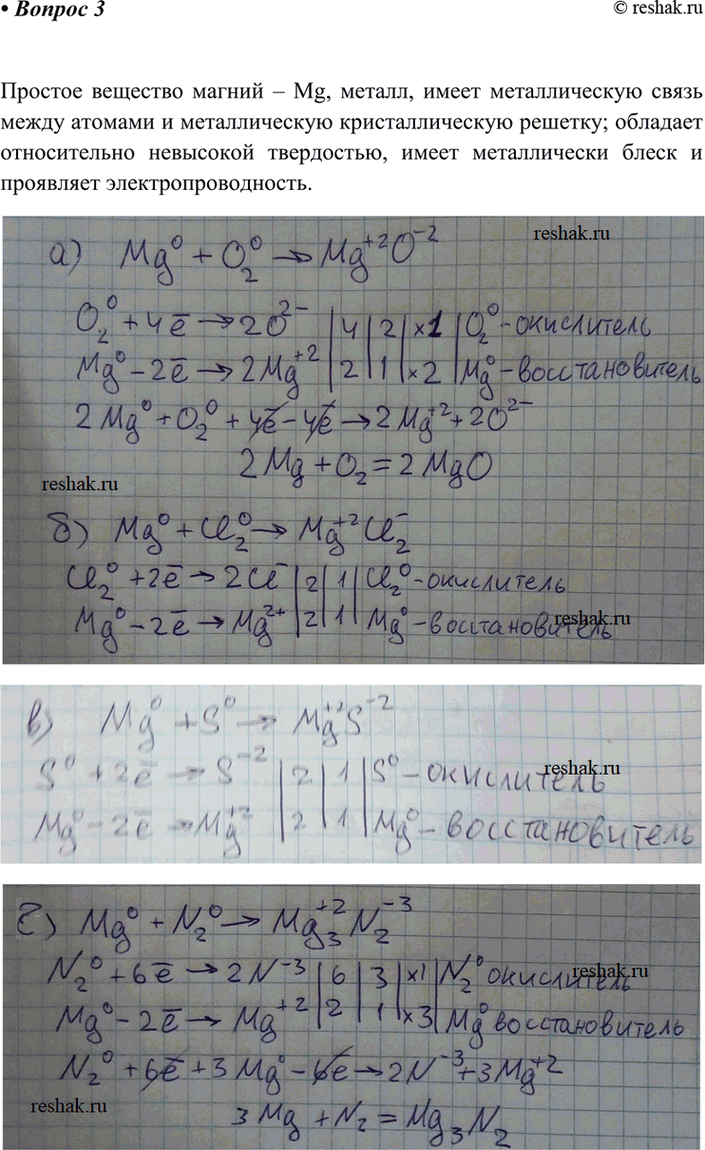 • Вопрос 3
© reshak.ru
Простое вещество магний – Mg, металл, имеет металлическую связь
между атомами и металлическую кристаллическую решетку; обладает
относительно невысокой твердостью, имеет металлически блеск и
проявляет электропроводность.
reshak.ru
а) Mg⁰ + O₂⁰ → Mg⁺²O⁻²
O₂⁰ + 4ē → 2O²⁻ | 4 | 2 | ×1 | O₂⁰ - окислитель
Mg⁰ - 2ē → 2Mg⁺² | 2 | 1 | ×2 | Mg⁰ - восстановитель
2Mg⁰ + O₂⁰ + 4ē - 4ē → 2Mg⁺² + 2O²⁻
2Mg + O₂ = 2MgO
reshak.ru
б) Mg⁰ + Cl₂⁰ → Mg⁺²Cl₂⁻
Cl₂⁰ + 2ē → 2Cl⁻ | 2 | 1 | Cl₂⁰ - окислитель
Mg⁰ - 2ē → Mg²⁺ | 2 | 1 | Mg⁰ - восстановитель
reshak.ru
в) Mg⁰ + S⁰ → Mg⁺²S⁻²
S⁰ + 2ē → S⁻² | 2 | 1 | S⁰ - окислитель
reshak.ru
Mg⁰ - 2ē → Mg⁺² | 2 | 1 | Mg⁰ - восстановитель
г) Mg⁰ + N₂⁰ → Mg₃⁺²N₂⁻³
N₂⁰ + 6ē → 2N⁻³ | 6 | 3 | ×1 | N₂⁰ окислитель
reshak.ru
Mg⁰ - 2ē → Mg⁺² | 2 | 1 | ×3 | Mg⁰ восстановитель
N₂⁰ + 6ē + 3Mg⁰ - 6ē → 2N⁻³ + 3Mg⁺²
reshak.ru
3Mg + N₂ = Mg₃N₂